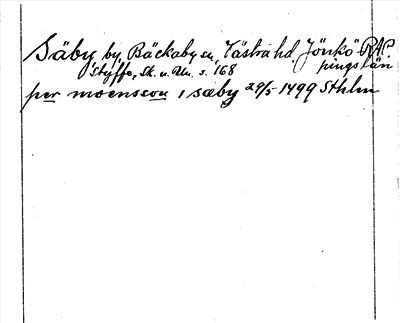 Säby by, Bäckaby sn, Västra hd Jönkö- RAP
Styffe, Sk. u. Un. s. 168 pings län
per moensson i sæby 29/5 1499 Sthlm